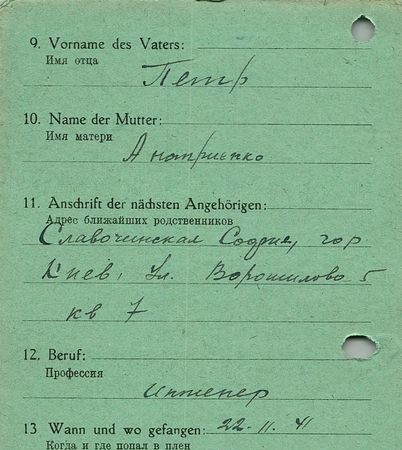 9. Vorname des Vaters:
Имя отца
Петр
10. Name der Mutter:
Имя матери
Анаприенко
11. Anschrift der nächsten Angehörigen:
Адрес ближайших родственников
Славочинская, гор
Киев, Ул. Ворошилово 5
кв 7
12. Beruf:
Профессия
инженер
13 Wann und wo gefangen: 22.11.41
Когда и где попал в плен